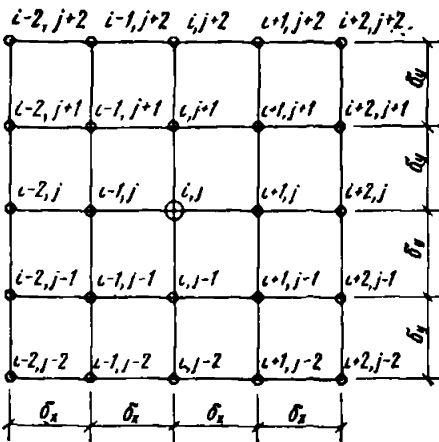 i-2, j+2 i-1, j+2 i, j+2 i+1, j+2 i+2, j+2
i-2, j+1 i-1, j+1 i, j+1 i+1, j+1 i+2, j+1
i-2, j i-1, j i, j i+1, j i+2, j
i-2, j-1 i-1, j-1 i, j-1 i+1, j-1 i+2, j-1
i-2, j-2 i-1, j-2 i, j-2 i+1, j-2 i+2, j-2
δy
δy
δy
δy
δx δx δx δx